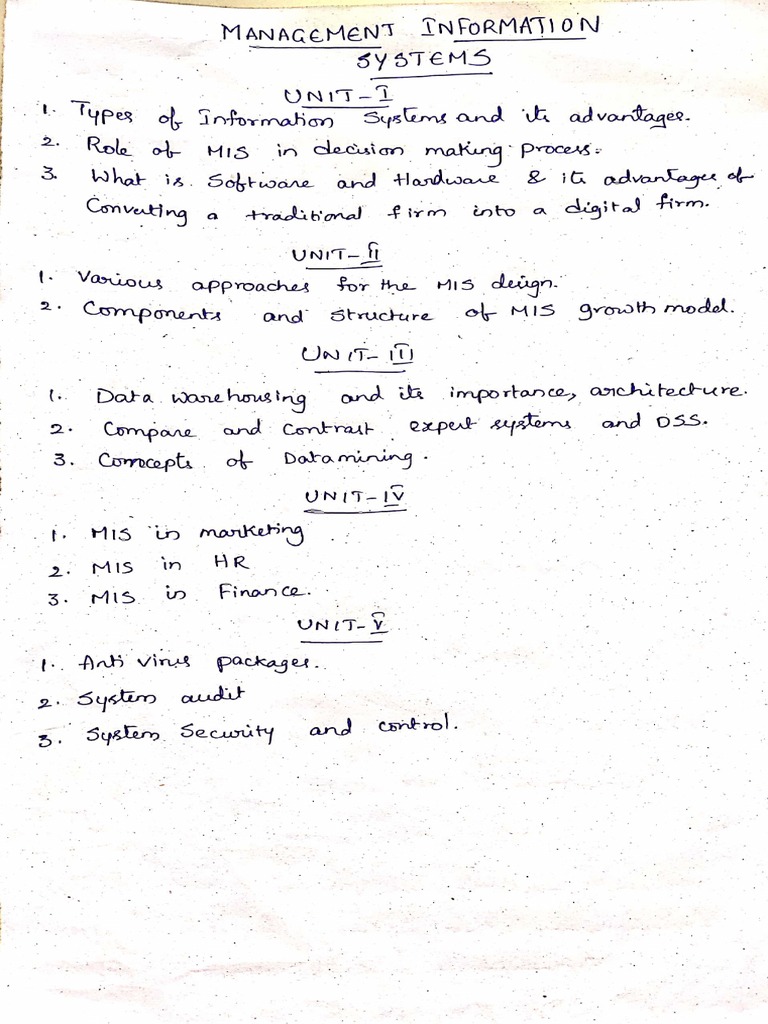 MANAGEMENT INFORMATION
SYSTEMS
UNIT-I
1. Types of Information Systems and its advantages.
2. Role of MIS in decision making process.
3. What is Software and Hardware & its advantages of
Converting a traditional firm into a digital firm.
UNIT-II
1. Various approaches for the MIS design.
2. Components and structure of MIS growth model.
UNIT-III
1. Data warehousing and its importance, architecture.
2. Compare and contrast expert systems and DSS.
3. Concepts of Datamining.
UNIT-IV
1. MIS in marketing
2. MIS in HR
3. MIS in Finance.
UNIT-V
1. Anti virus packages.
2. System audit
3. System Security and control.